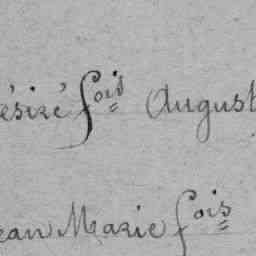 ésiré fois August
ean Marie fois